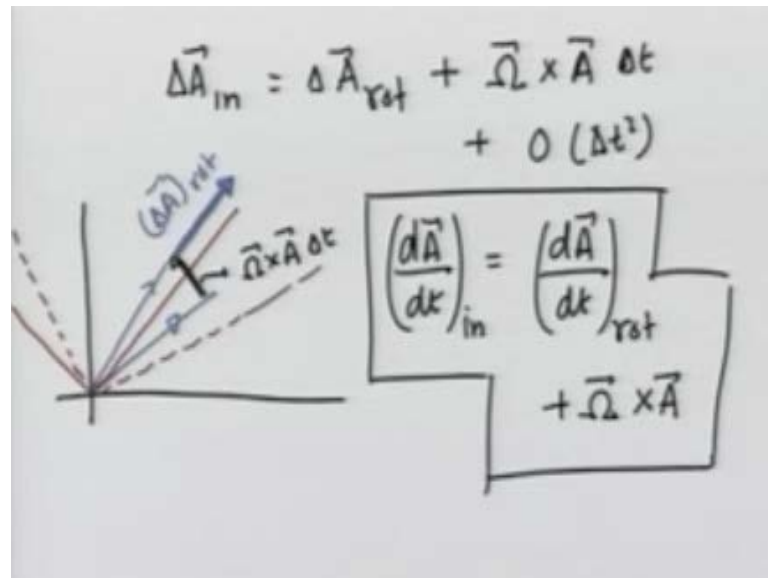 ΔA⃗_in = ΔA⃗_rot + Ω⃗ × A⃗ Δt
+ O (Δt²)
(ΔA⃗)_rot
Ω⃗×A⃗ Δt
(dA⃗/dt)_in = (dA⃗/dt)_rot
+ Ω⃗ × A⃗